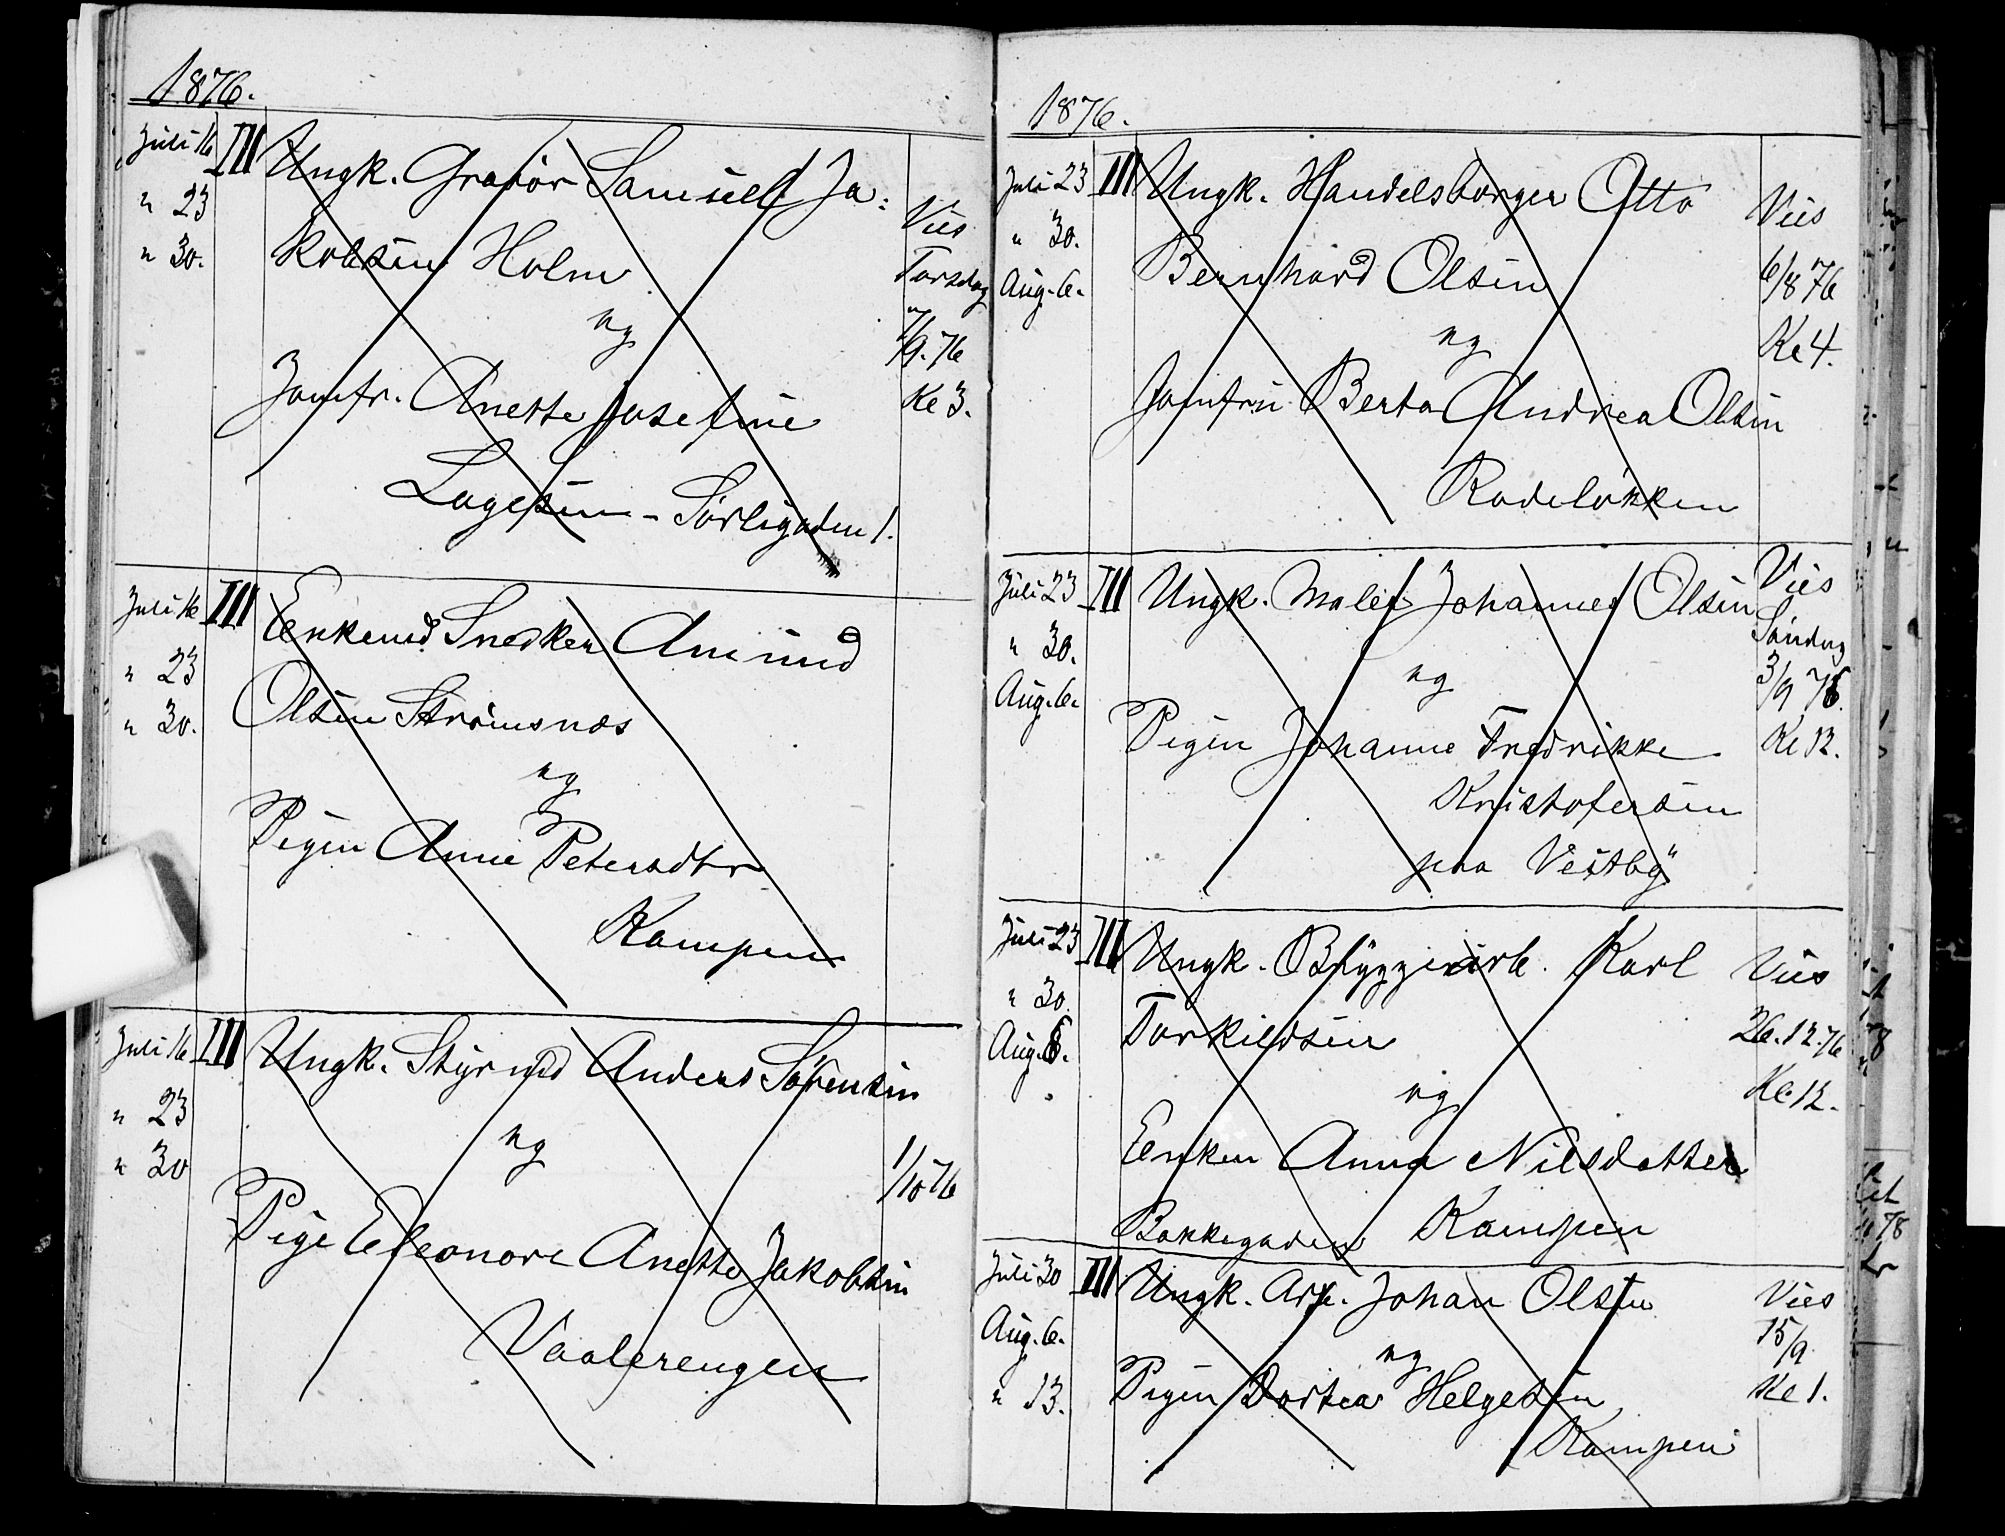 1876.
Juli 16 III Ungk. Gravør Samuel Ja:
" 23 kobsen Holm Vies
" 30. og Torsdag
7/9. 76
Jomfr. Anette Josefine Kl 3.
Lagesen - Sørligaden 1.
Juli 16 III Enkemd. Snedker Amund
" 23 Olsen Strømsnæs
" 30. og
Pigen Anne Petersdtr
Kampen
Juli 16 III Ungk. Styrmd Anders Sørensen
" 23 og
" 30 1/10 76
Pige Eleonore Anette Jakobsen
Vaalerengen
1876.
Juli 23 III Ungk. Handelsborger Otto Vies
" 30. Bernhard Olsen 6/8 76
Aug. 6. og Kl 4.
Jomfru Berta Andrea Olsen
Rodeløkken
Juli 23 III Ungk. Maler Johannes Olsen Vies
" 30. og Søndag
Aug. 6. 3/9 76.
Pigen Johanne Fredrikke Kl 12.
Kristofersen
paa Vestby
Juli 23 III Ungk. Byggearb. Karl Vies
" 30. Torkildsen 26.12.76
Aug. 6. og Kl. 12.
Enken Anna Nilsdatter
Bakkegaden Kampen
Juli 30 III Ungk. Arb. Johan Olsen Vies
Aug. 6. og 15/9
" 13. Pigen Dortea Helgesen Kl 1.
Kampen